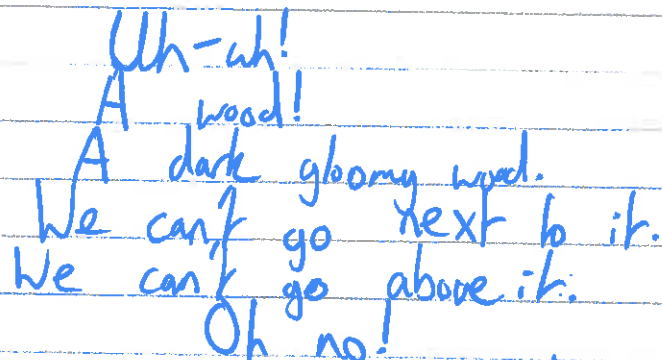 Uh-uh!
A wood!
A dark gloomy wood.
We can't go next to it.
We can't go above it.
Oh no!